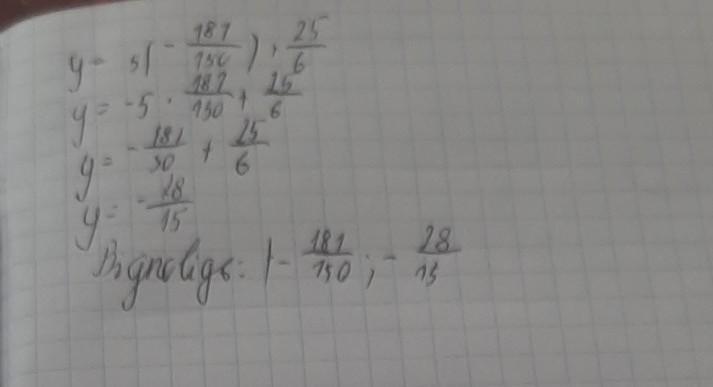 y = 5(-\frac{181}{150}) + \frac{25}{6}
y = -5 \cdot \frac{181}{150} + \frac{25}{6}
y = -\frac{181}{30} + \frac{25}{6}
y = -\frac{28}{15}
Відповідь: (-\frac{181}{150}; -\frac{28}{15}